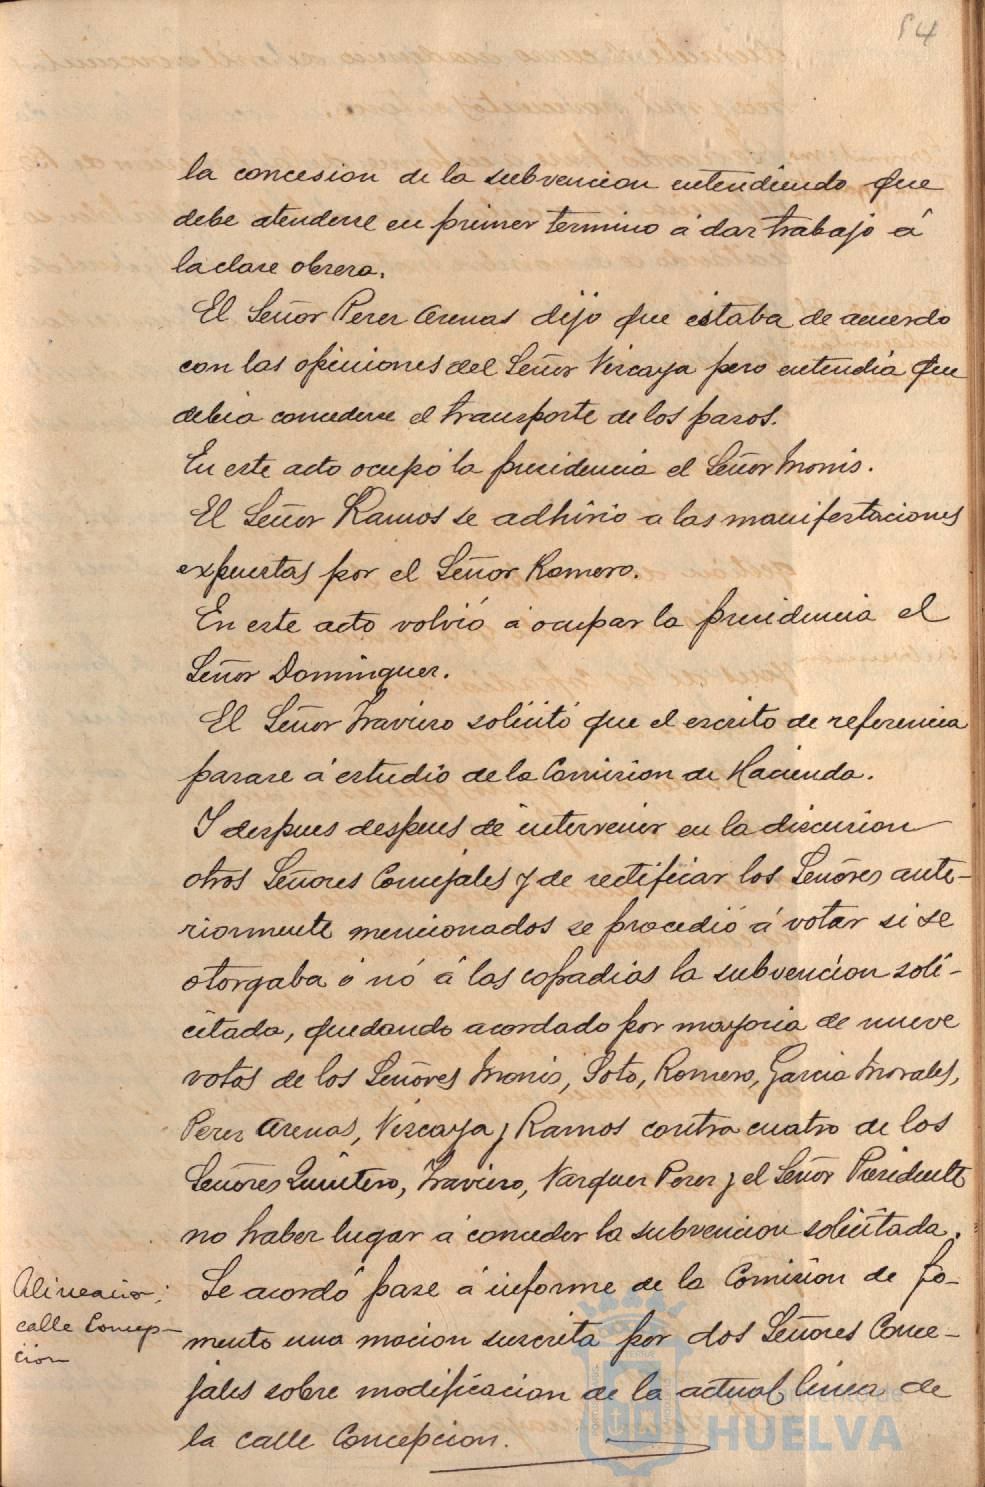 54
la concesion de la subvencion entendiendo que
debe atenderse en primer termino á dar trabajo á
la clase obrera.
El Señor Perez Arenas dijo que estaba de acuerdo
con las opiniones del Señor Vizcaya pero entendia que
debia concederse el transporte de los pasos.
En este acto ocupó la presidencia el Señor Monis.
El Señor Ramos se adhirio a las manifestaciones
expuestas por el Señor Romero.
En este acto volvió á ocupar la presidencia el
Señor Dominguez.
El Señor Travieso solicitó que el escrito de referencia
pasase á estudio de la Comision de Hacienda.
Y despues despues de intervenir en la discusion
otros Señores Concejales y de rectificar los Señores ante-
riormente mencionados se procedió á votar si se
otorgaba ó nó á las cofradias la subvencion soli-
citada, quedando acordado por mayoria de nueve
votos de los Señores Monis, Soto, Romero, Garcia Morales,
Perez Arenas, Vizcaya y Ramos contra cuatro de los
Señores Quintero, Travieso, Vazquez Perez y el Señor Presidente
no haber lugar á conceder la subvencion solicitada.
Alineacion;
calle Concep-
cion
Se acordó pase á informe de la Comision de fo-
mento una mocion suscrita por dos Señores Conce-
jales sobre modificacion de la actual linea de
la calle Concepcion.
Ayuntamiento de
HUELVA